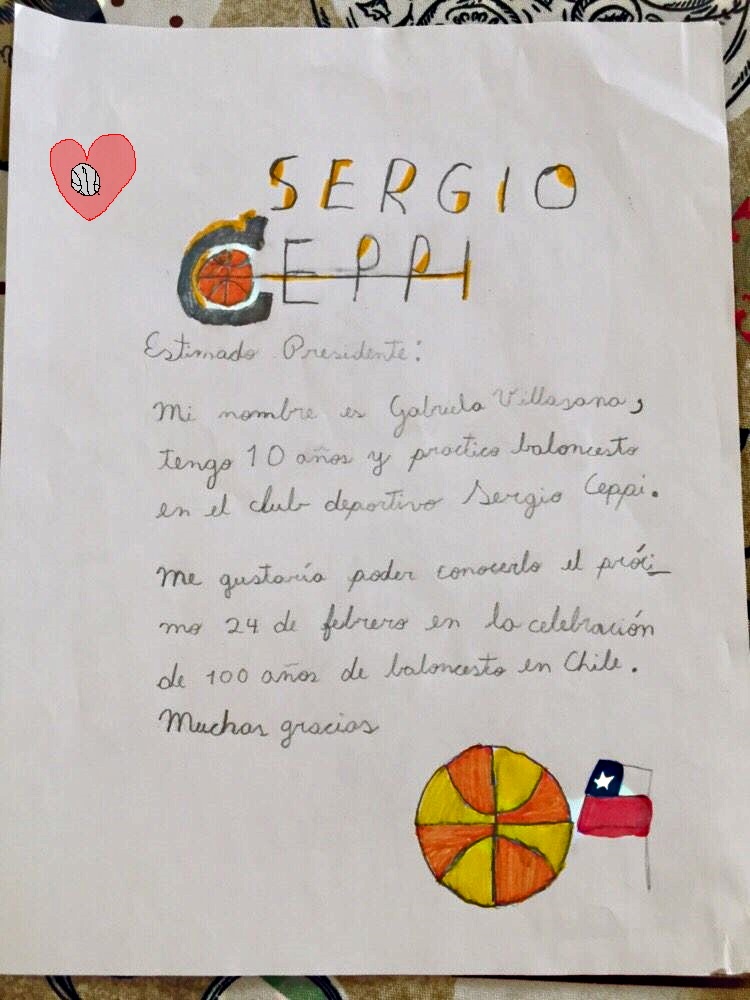 SERGIO
CEPPI
Estimado Presidente:
Mi nombre es Gabriela Villasana,
tengo 10 años y practico baloncesto
en el club deportivo Sergio Ceppi.
Me gustaría poder conocerlo el próxi_
mo 24 de febrero en la celebración
de 100 años de baloncesto en Chile.
Muchas gracias